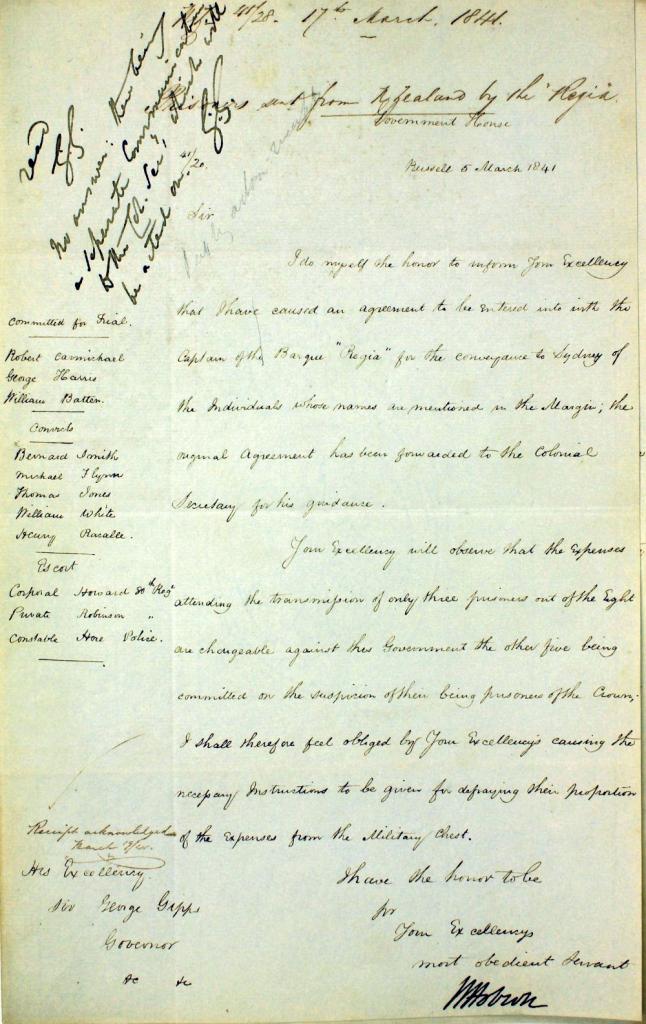 41/28. 17th March. 1841.
Prisoners sent from N Zealand by the "Regia"
Government House
Russell 5 March 1841
41/20.
read
G.G.
No answer: there being
a separate Communication
to the Col. Sec, which will
be acted on.
G.G.
Sir
I do myself the honor to inform Your Excellency
that I have caused an agreement to be entered into with the
Captain of the Barque "Regia" for the conveyance to Sydney of
the Individuals whose names are mentioned in the Margin; the
original Agreement has been forwarded to the Colonial
Secretary for his guidance.
Your Excellency will observe that the Expenses
attending the transmission of only three prisoners out of the Eight
are chargeable against this Government the other five being
committed on the suspicion of their being prisoners of the Crown;
I shall therefore feel obliged by Your Excellency's causing the
necessary Instructions to be given for defraying their proportion
of the Expenses from the Military Chest.
I have the honor to be
Sir
Your Excellencys
most obedient Servant
W Hobson
Committed for Trial.
Robert Carmichael
George Harris
William Batten.
Convicts
Bernard Smith
Michael Flynn
Thomas Jones
William White
Henry Racalle.
Escort
Corporal Howard 80th Regt
Private Robinson "
Constable Hore Police.
Receipt acknowledged
March
His Excellency
Sir George Gipps
Governor
&c &c